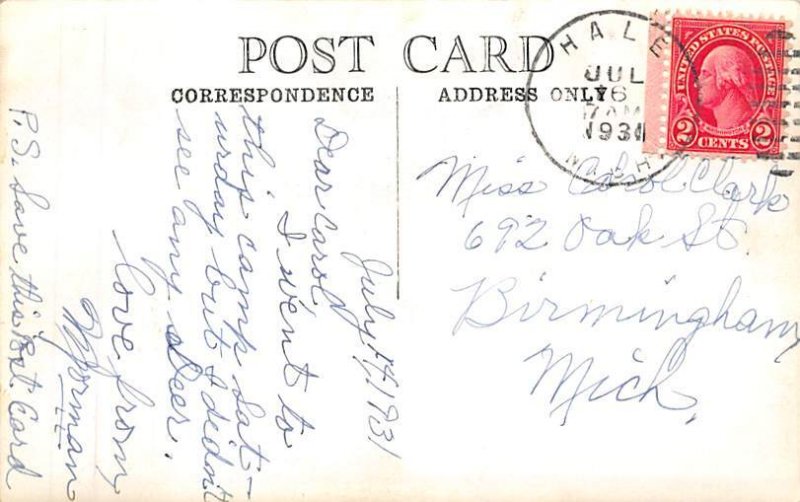 POST CARD
CORRESPONDENCE
ADDRESS ONLY
HALE
JUL
6
7 AM
1931
MICH
UNITED STATES POSTAGE
WASHINGTON
2 CENTS 2
Miss Carol Clark
692 Oak St.
Birmingham,
Mich.
July 4, 1931
Dear Carol
I went to
this camp Sat-
urday but I didn't
see any deer.
Love from,
Norman
P.S. Save this Post Card